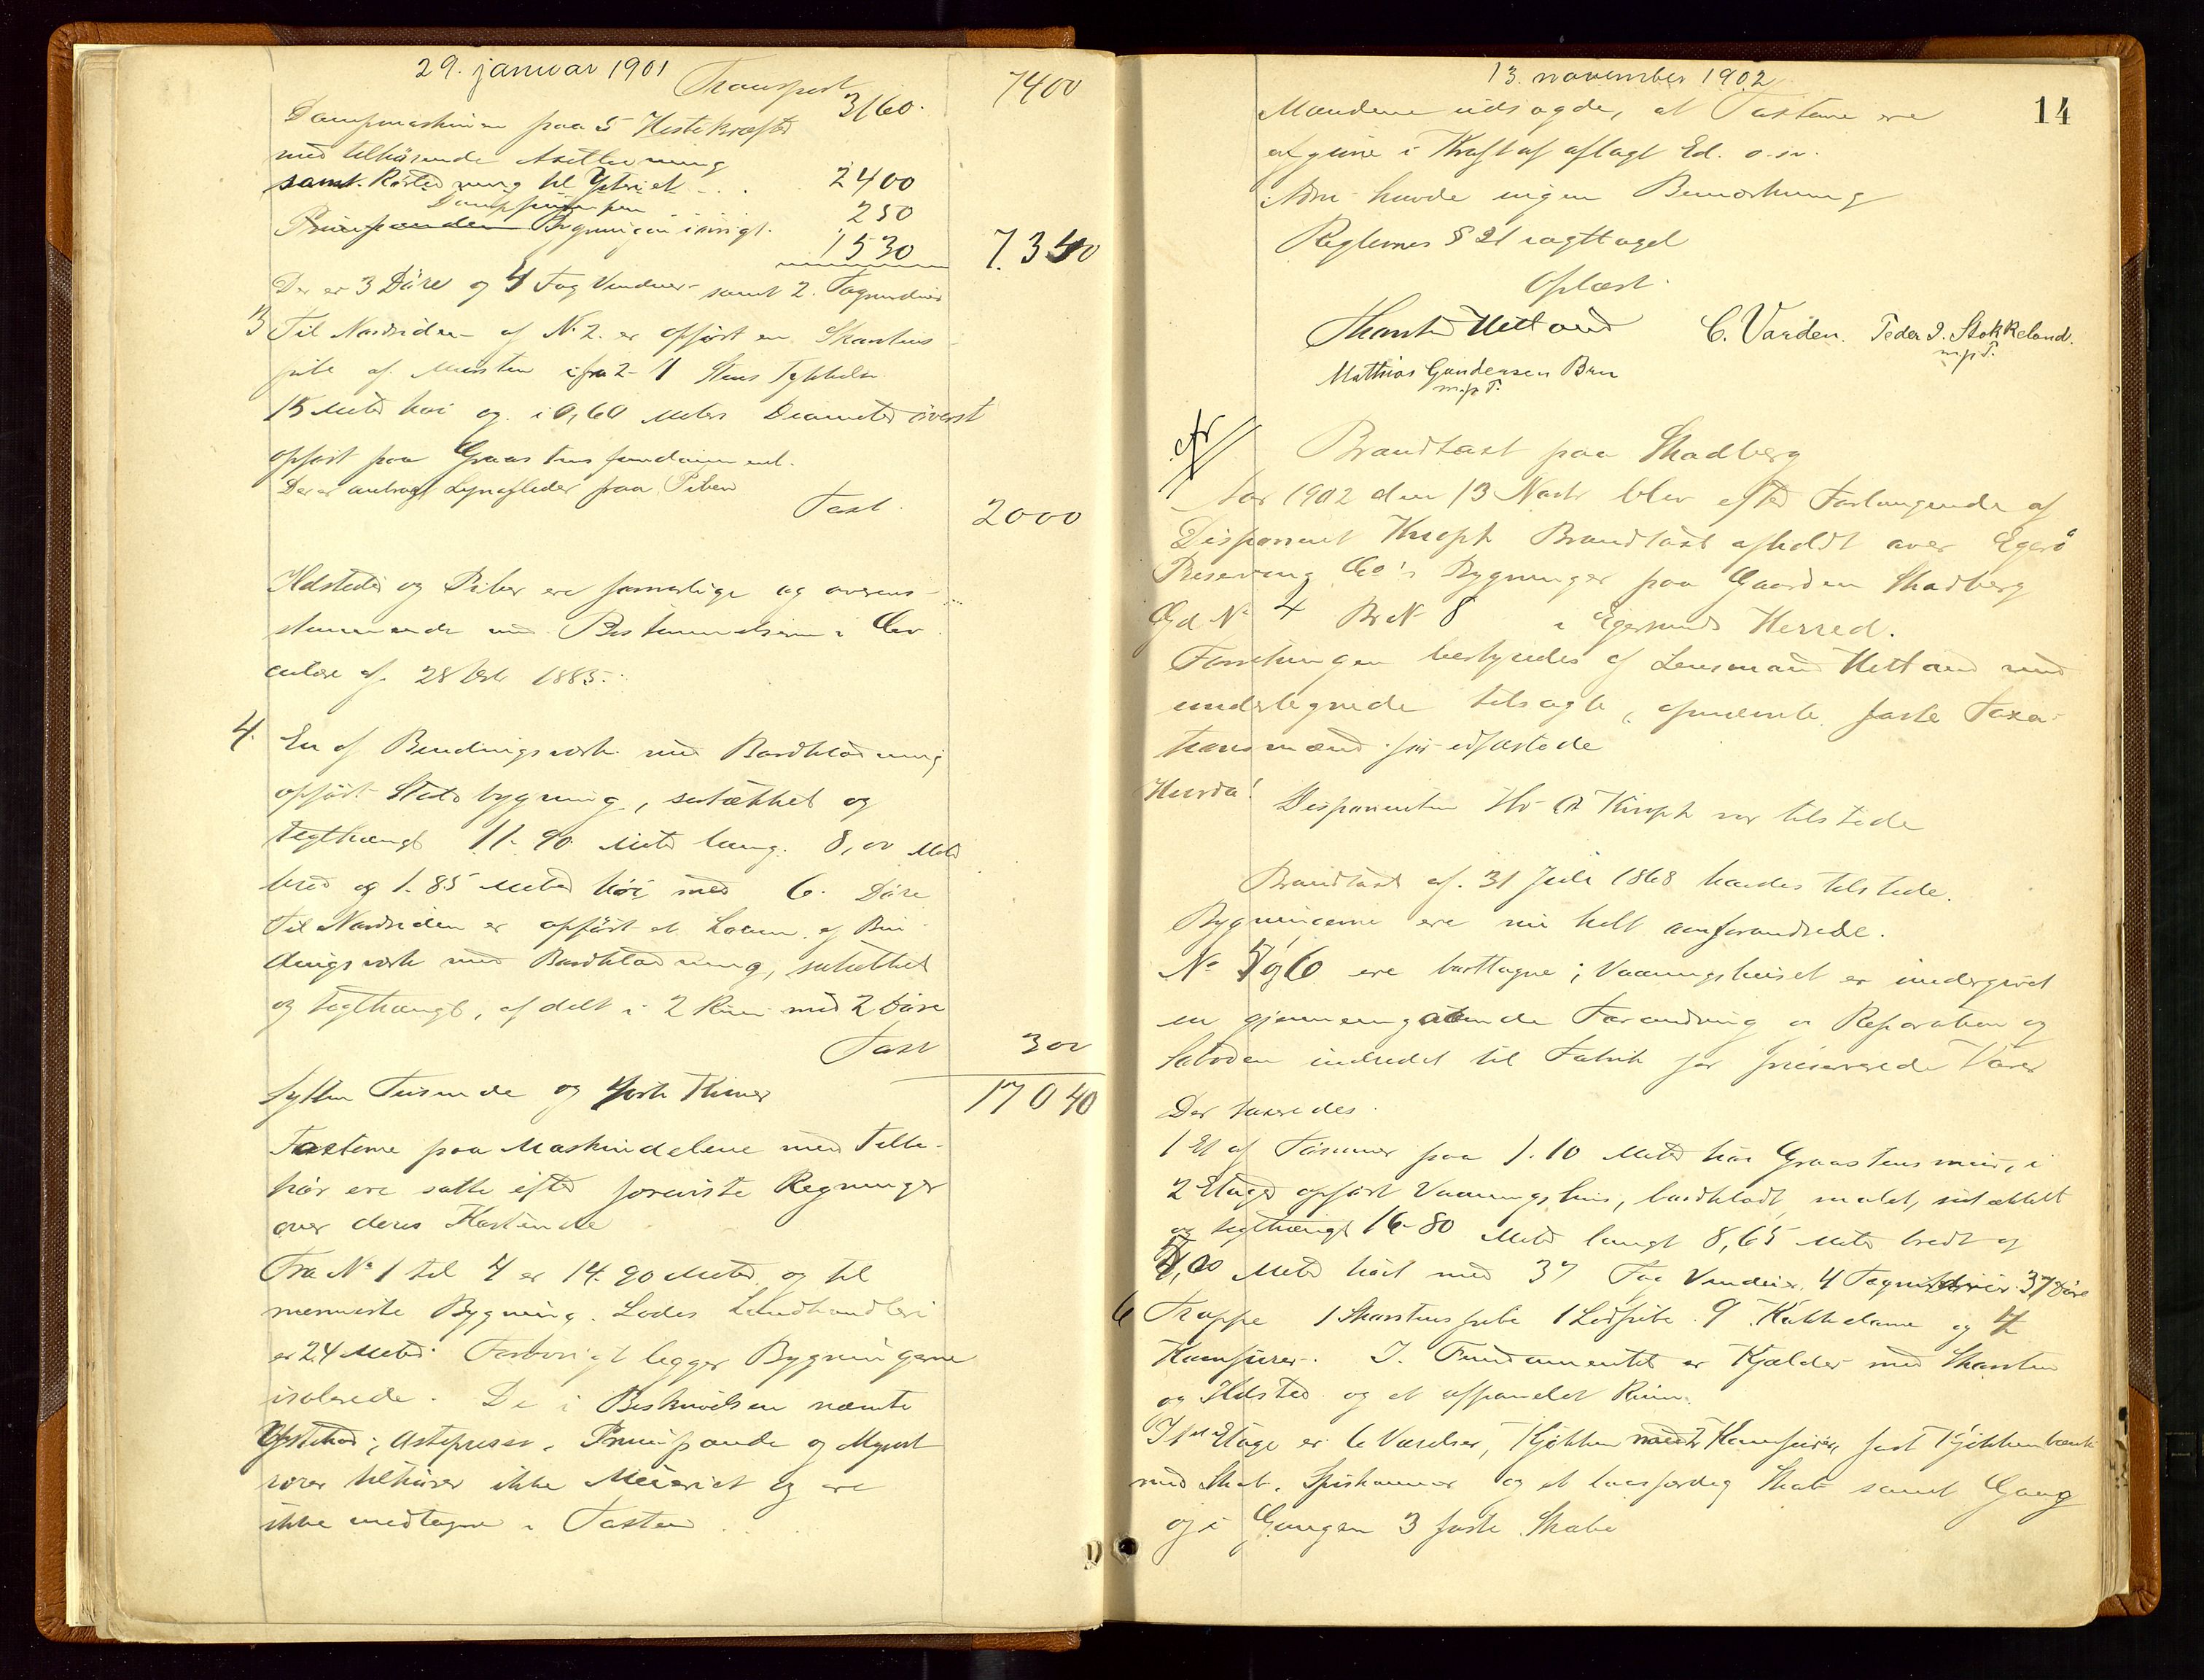 29. januar 1901
Transport 3160. 7400
Dampmaskinen paa 5 Hestekræfter
med tilhørende Axelledning
samt Rørledning til Ysteriet - . . 2400
Dampsprøiten 250
Bygningen iøvrigt. 1530 7.340
Der er 3 Døre og 4 Fag Vinduer samt 2. Tagvinduer
3 Til Nordsiden af No 2. er opført en Skorstens-
pibe af Mursten ifra 2-1 Stens Tykkelse
15 Meter høi og i 0,60 Meters Diameter øverst
opført paa Graastensfundament.
Der er anbragt Lynafleder paa Piben
Taxt. 2000
Ildsteder og Piber ere forsvarlige og overens-
stemmende med Bestemmelserne i Cir
culære af 28 1885.
4. En af Bindingsværk med Bordklædning
opført bygning, sutækket og
teglhængt 11.90 Meter lang. 8,00 Meter
bred og 1.85 Meter høi med 6. Døre
Til Nordsiden er opført et Locum af Bin
dingsværk med Bordklædning, sutækket
og teglhængt, afdelt i 2 Rum med 2 Døre
Taxt 300
Sytten Tusinde og førti Kroner 17040
Taxterne paa Maskindelene med Tilbe-
hør ere satte efter foreviste Regninger
over deres Kostende
Fra No 1 til 4 er 14.90 Meter og til
nærmeste Bygning. Lodes Landhandleri
er 24 Meter. Forøvrigt ligger Bygningerne
isolerede. De i Beskrivelsen nævnte
Ystekar, Ostepresser, Primpande og Mysost
rører tilhører ikke Meieriet og ere
ikke medtagne i Taxten
13. november 1902
14
Mændene udsagde, at Taxterne ere
afgivne i Kraft af aflagt Ed. o.s.v.
havde ingen Bemærkning
Reglernes § 21 iagttaget
Oplæst.
Hetland C. Varden. Peder I. Stokkeland.
m.p.P.
Mathias Gundersen Bru
m.p.P.
Brandtaxt paa Skadberg
Aar 1902 den 13 Novbr blev efter Forlangende af
Disponent Knoph Brandtaxt afholdt over Egerø
Preserving Co's Bygninger paa Gaarden Skadberg
Gd No 4 Br N 8 i Egersunds Herred.
Forretningen bestyredes af Lensmand Hetland med
undertegnede tilsagte, opnævnte faste Taxa-
tionsmænd før edfæstede
Hvorda! Disponenten Hr A Knoph var tilstede
Brandtaxt af 31 Juli 1868 havdes tilstede.
Bygningerne ere nu helt omforandrede.
No 5 og 6 ere borttagne; Vaaningshuset er undergivet
en gjennemgaaende Forandring og Reparation og
Søboden indredet til Fabrik for preserverede Varer
Der taxeredes.
1 Et af Tømmer paa 1.10 Meter høi Graastensmur, i
2 Etager opført Vaaningshus, bordklædt, malet, sutækket
og teglhængt 16-80 Meter langt 8,65 Meter bredt og
7,00 Meter høit med 37 Fag Vinduer 4 Tagvinduer 37 Døre
6 Trappe 1 Skorstenspibe 1 Lodpibe 9 Kakkelovne og 4
Komfurer. I Fundamentet er Kjælder med Skorsten
og Ildsted og et afpanelet Rum.
I 1ste Etage er 6 Værelser, Kjøkken med 2 Komfurer, fast Kjøkkenbænk
med Skab, Spiskammer og et laasfærdig Skab samt Gang
og i Gangen 3 faste Skabe